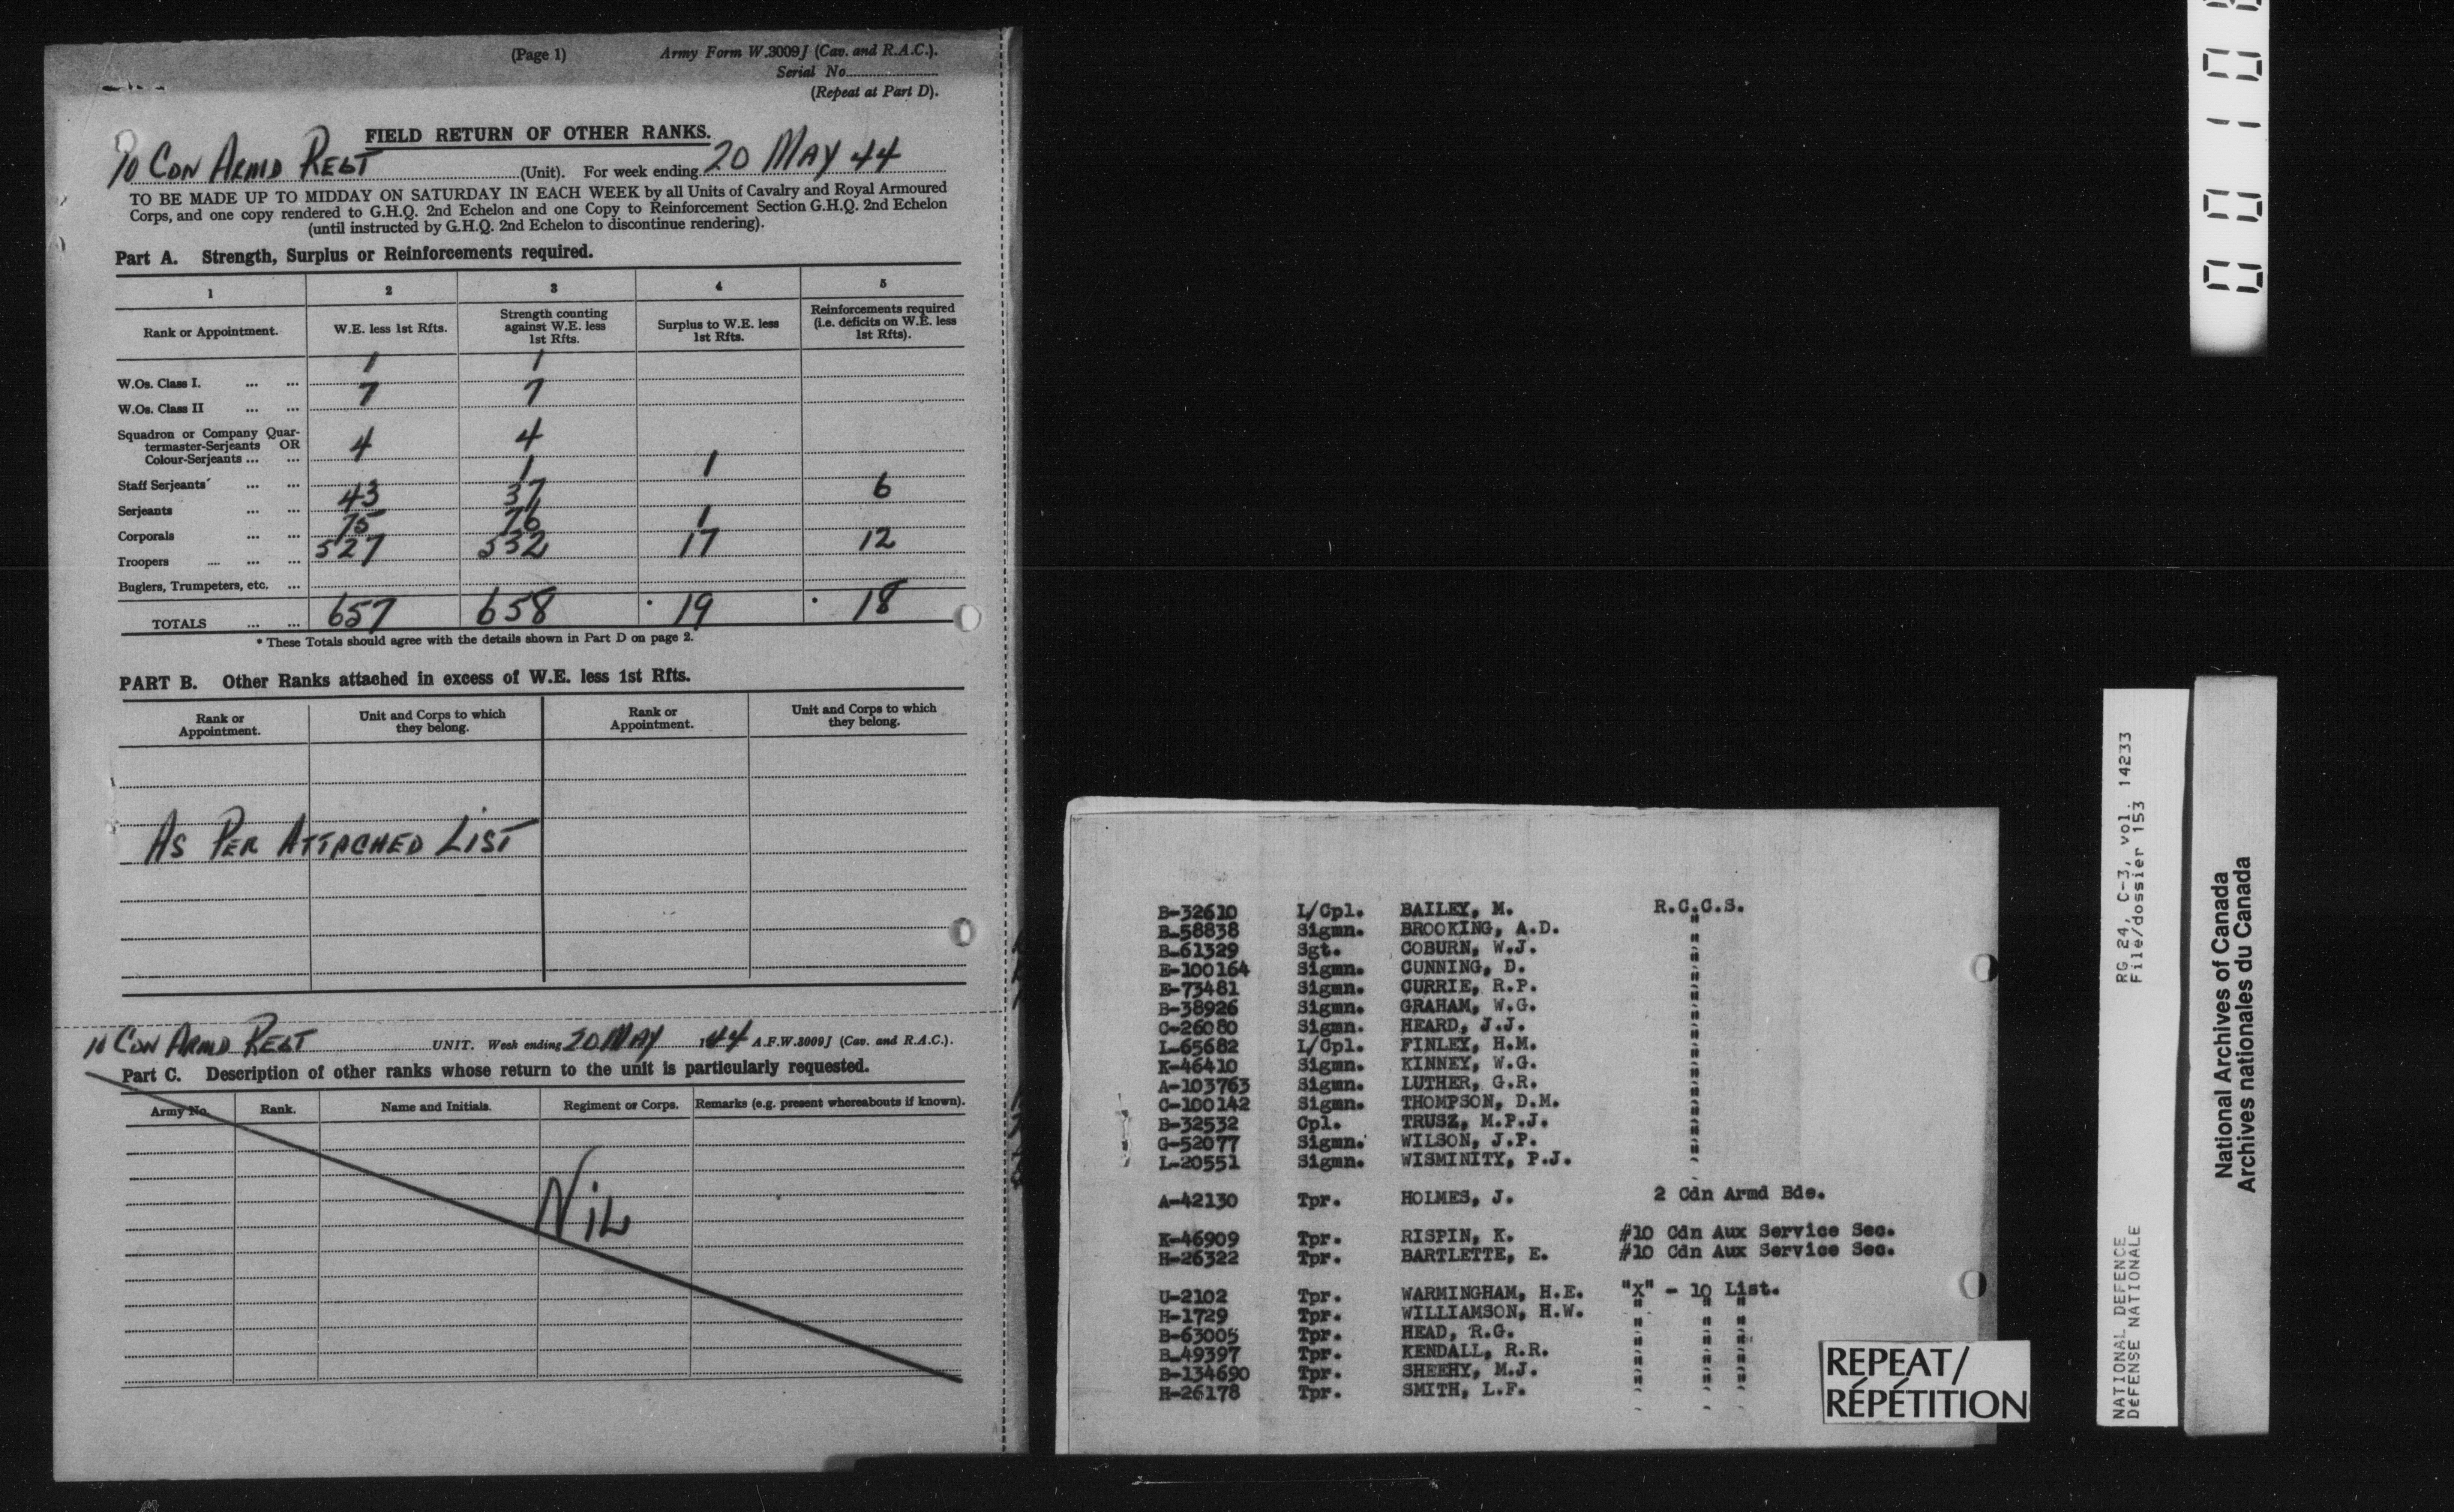 (Page 1) Army Form W.3009J (Cav. and R.A.C.).
Serial No.
(Repeat at Part D).
FIELD RETURN OF OTHER RANKS.
10 CDN ARMD REGT (Unit). For week ending 20 MAY 44
TO BE MADE UP TO MIDDAY ON SATURDAY IN EACH WEEK by all Units of Cavalry and Royal Armoured
Corps, and one copy rendered to G.H.Q. 2nd Echelon and one Copy to Reinforcement Section G.H.Q. 2nd Echelon
(until instructed by G.H.Q. 2nd Echelon to discontinue rendering).
Part A. Strength, Surplus or Reinforcements required.
1 2 3 4 5
Rank or Appointment. W.E. less 1st Rfts. Strength counting against W.E. less 1st Rfts. Surplus to W.E. less 1st Rfts. Reinforcements required (i.e. deficits on W.E. less 1st Rfts).
W.Os. Class I. ... ... 1 1
W.Os. Class II ... ... 7 7
Squadron or Company Quar-
termaster-Serjeants OR
Colour-Serjeants ... ... 4 4
Staff Serjeants ... ... 1 1
Serjeants ... ... 43 37 6
Corporals ... ... 75 76 1
Troopers .... ... ... 527 532 17 12
Buglers, Trumpeters, etc. ...
TOTALS ... ... 657 658 19 18
* These Totals should agree with the details shown in Part D on page 2.
PART B. Other Ranks attached in excess of W.E. less 1st Rfts.
Rank or Appointment. Unit and Corps to which they belong. Rank or Appointment. Unit and Corps to which they belong.
AS PER ATTACHED LIST
10 CDN ARMD REGT UNIT. Week ending 20 MAY 1944 A.F.W.3009J (Cav. and R.A.C.).
Part C. Description of other ranks whose return to the unit is particularly requested.
Army No. Rank. Name and Initials. Regiment or Corps. Remarks (e.g. present whereabouts if known).
NIL
B-32610 L/Cpl. BAILEY, M. R.C.C.S.
B-58838 Sigmn. BROOKING, A.D. "
B-61329 Sgt. COBURN, W.J. "
E-100164 Sigmn. CUNNING, D. "
E-73481 Sigmn. CURRIE, R.P. "
B-38926 Sigmn. GRAHAM, W.G. "
C-26080 Sigmn. HEARD, J.J. "
L-65682 L/Cpl. FINLEY, H.M. "
K-46410 Sigmn. KINNEY, W.G. "
A-103763 Sigmn. LUTHER, G.R. "
C-100142 Sigmn. THOMPSON, D.M. "
B-32532 Cpl. TRUSZ, M.P.J. "
G-52077 Sigmn. WILSON, J.P. "
L-20551 Sigmn. WISMINITY, P.J. "
A-42130 Tpr. HOLMES, J. 2 Cdn Armd Bde.
K-46909 Tpr. RISPIN, K. #10 Cdn Aux Service Sec.
H-26322 Tpr. BARTLETTE, E. #10 Cdn Aux Service Sec.
U-2102 Tpr. WARMINGHAM, H.E. "X" - 10 List.
H-1729 Tpr. WILLIAMSON, H.W. " " "
B-63005 Tpr. HEAD, R.G. " " "
B-49397 Tpr. KENDALL, R.R. " " "
B-134690 Tpr. SHEEHY, M.J. " " "
H-26178 Tpr. SMITH, L.F. " " "
REPEAT/
RÉPÉTITION
NATIONAL DEFENCE RG 24, C-3, vol. 14233
DÉFENSE NATIONALE File/dossier 153
National Archives of Canada
Archives nationales du Canada